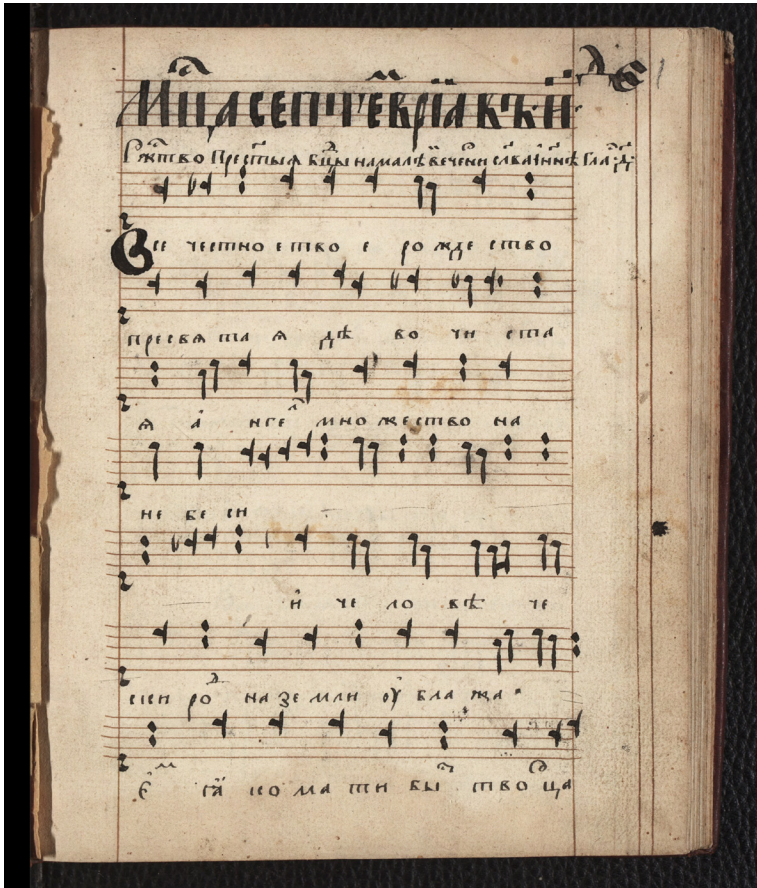 Мц҃а септѐврїа въ·и҃·
Ржⷭ҇тво Престы́ѧ Бц҃ы на малѣ вечени слⷡ҇а и҆ ннѣ Гла·д҃·
Все честно е тво е ро жде ство
пресвѧ та ѧ дѣ во чи ста
ѧ а҆ нгеⷧ҇ мно жество на
не бе си
и҆ че ло вѣ че
ски роⷣ на зе мли оу҆ бла жа
ꙗ҆ ко ма ти бы тво ца